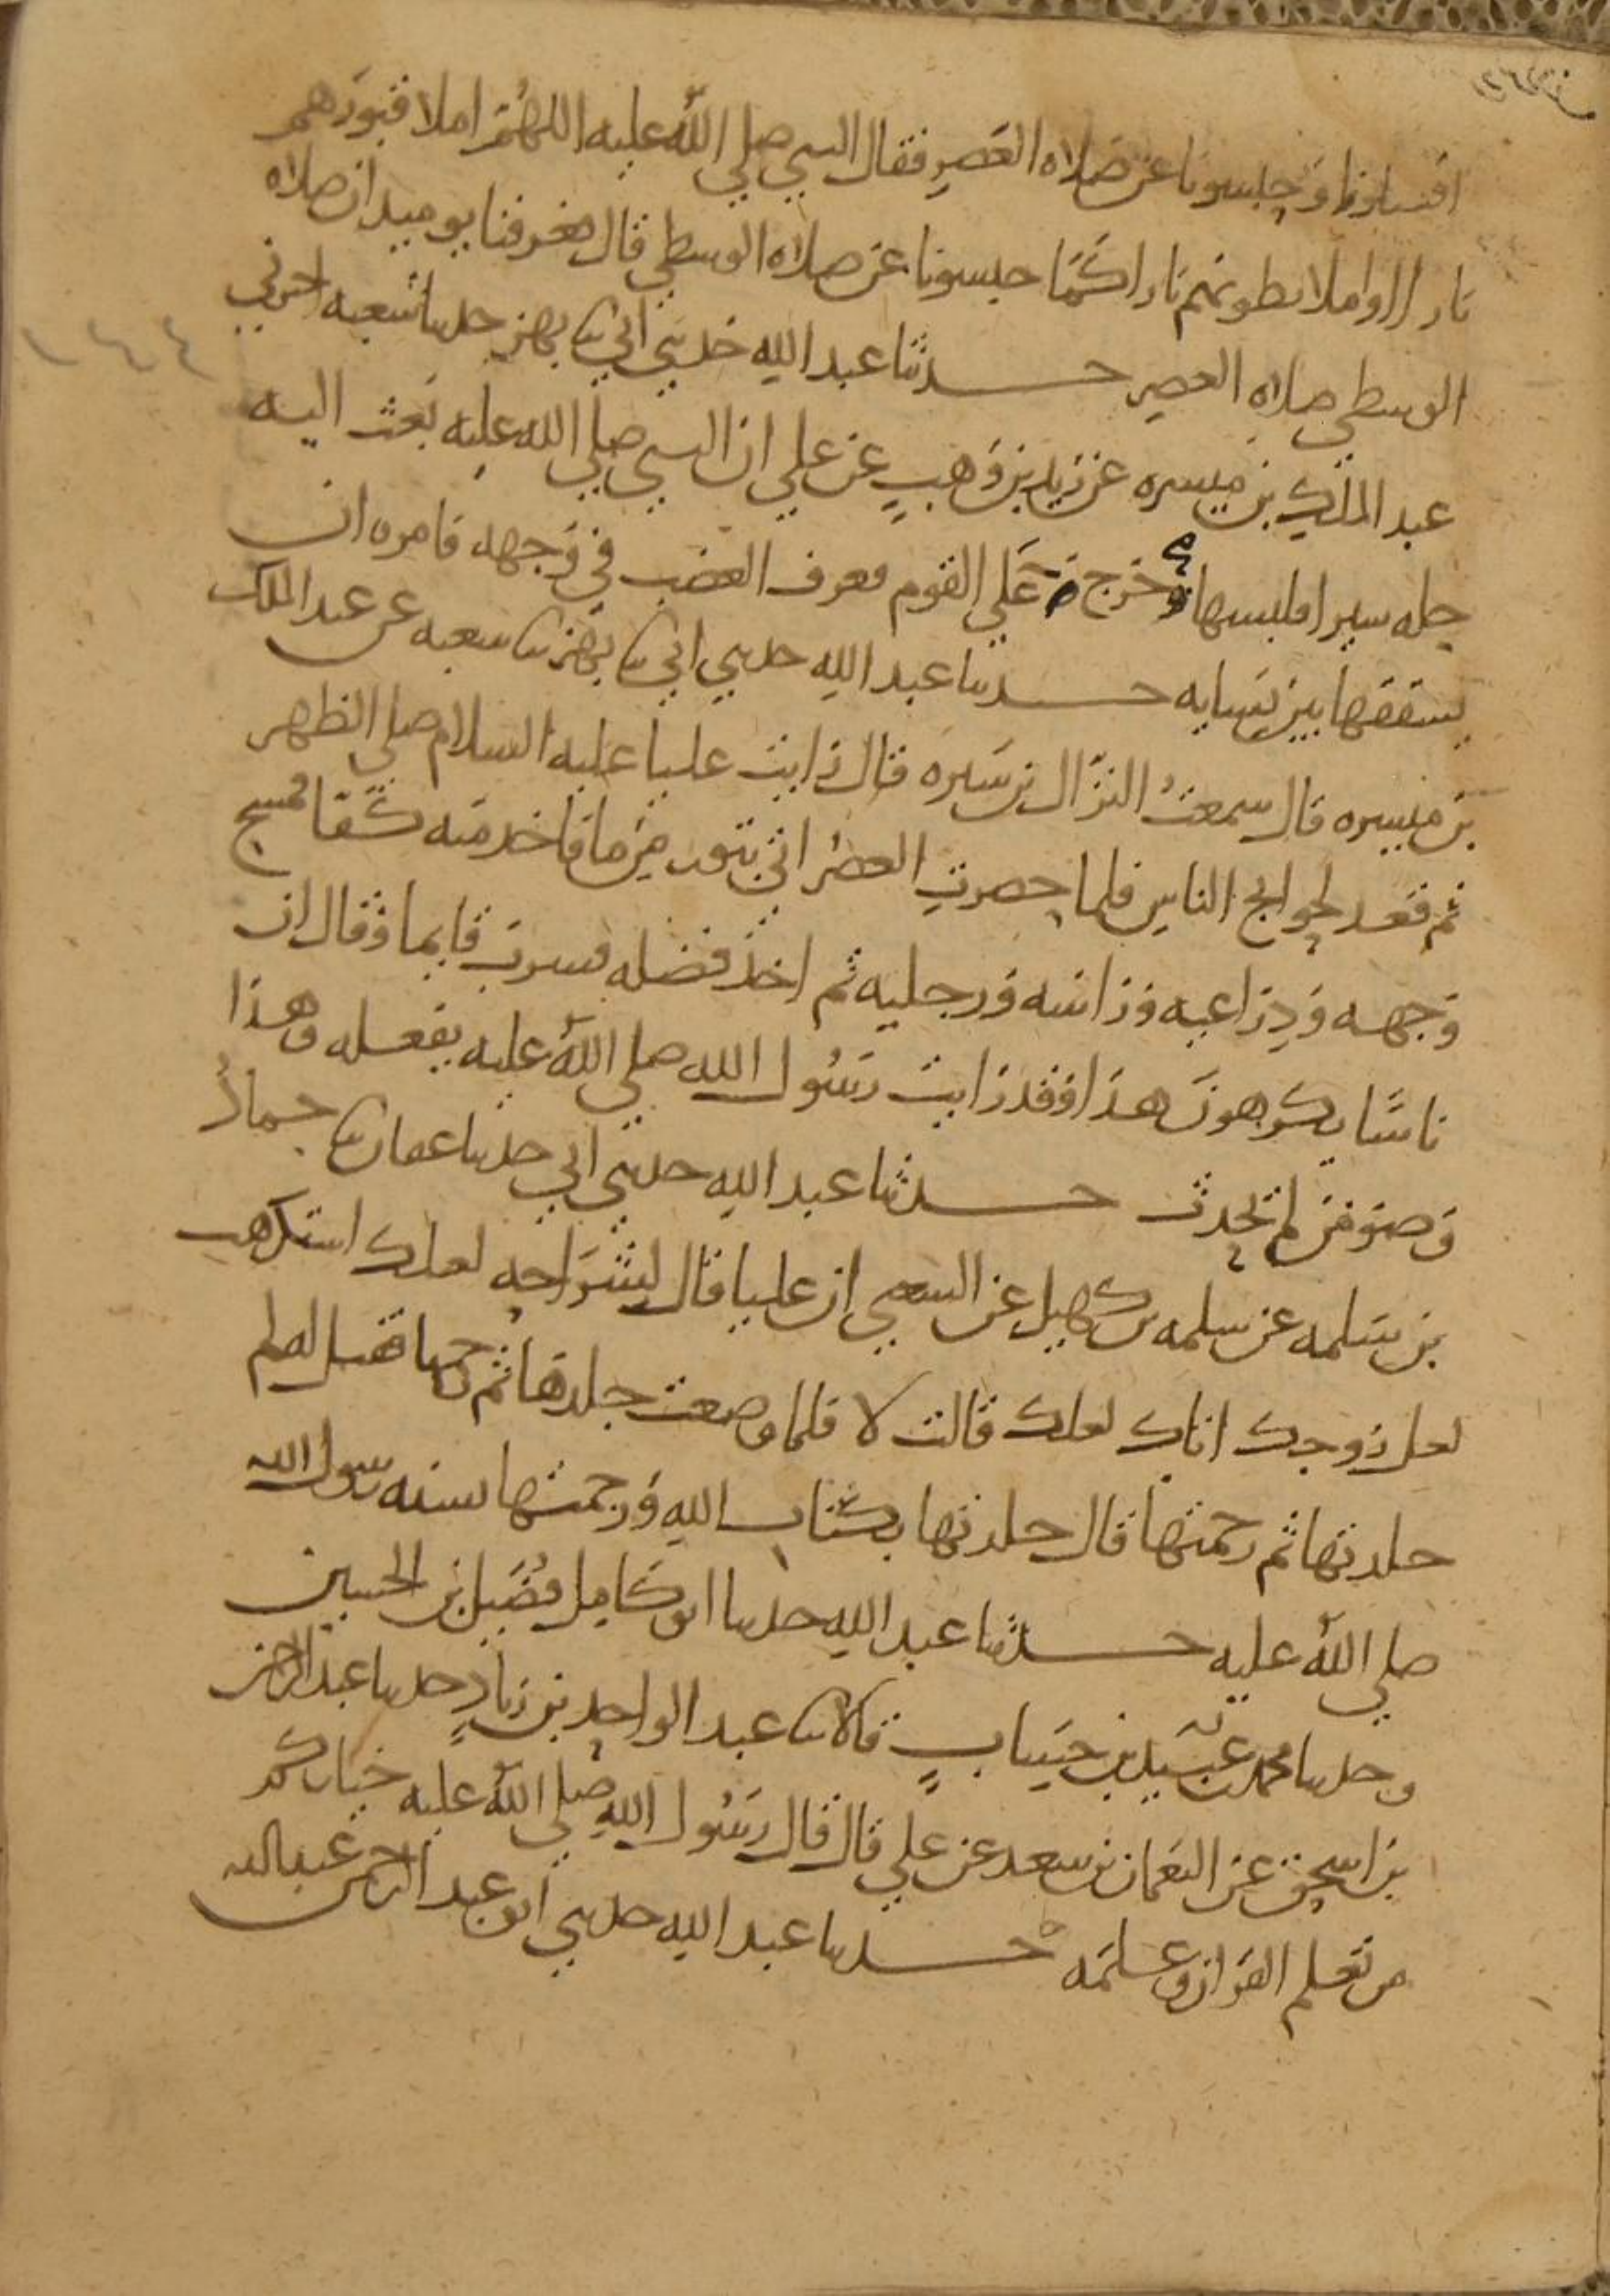 اقتسلونا وحبسونا عن صلاه العصر فقال النبي صلى الله عليه اللهم املا قبورهم
نارا او املا بطونهم نارا كما حبسونا عن صلاه الوسطي قال فعرفنا يوميذ ان صلاه
الوسطي صلاه العصر حدثنا عبد الله حدثني ابي ثنا بهز حدثنا شعبه اخبرني
عبد الملك بن ميسره عن زيد بن وهب عن علي ان النبي صلي الله عليه بعث اليه
حله سيرا فلبسها وخرج علي القوم فعرف الغضب في وجهه فامره ان
يشققها بين نسايه حدثنا عبد الله حدثني ابي ثنا بهز ثنا شعبه عن عبد الملك
بن ميسره قال سمعت النزال بن سبره قال رايت عليا عليه السلام صلي الظهر
ثم قعد لحوايج الناس فلما حضرت العصر اتي بتور من ما فاخذ منه كفا فمسح
وجهه وذراعيه وراسه ورجليه ثم اخذ فضله فشرب قايما وقال ان
ناسا يكرهون هذا وقد رايت رسول الله صلي الله عليه يفعله وهذا
وضو من لم يحدث حدثنا عبد الله حدثني ابي حدثنا عفان ثنا حماد
بن سلمه عن سلمه بن كهيل عن الشعبي ان عليا قال لشراحه لعلك استكرهت
لعل زوجك اتاك لعلك قالت لا فلما وضعت جلدها ثم رجمها فقيل له لم
جلدتها ثم رجمتها قال جلدتها بكتاب الله ورجمتها بسنه رسول الله
صلي الله عليه حدثنا عبد الله حدثنا ابو كامل فضيل بن الحسين
وحدثنا محمد بن عبيد بن حساب قالا ثنا عبد الواحد بن زياد حدثنا عبد الرحمن
بن اسحق عن النعمان بن سعد عن علي قال قال رسول الله صلي الله عليه خياركم
من تعلم القران وعلمه حدثنا عبد الله حدثني ابو عبد الرحمن عبد الله